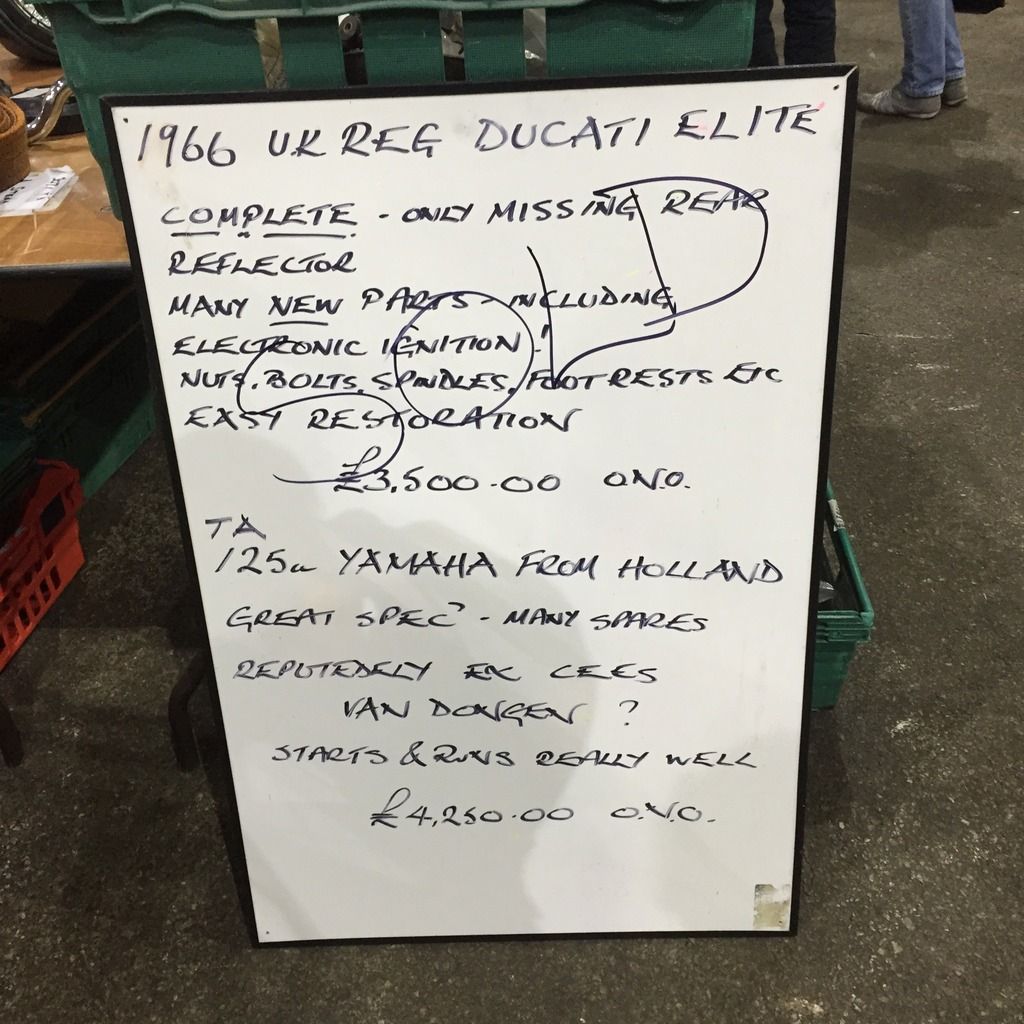 1966 UK REG DUCATI ELITE
COMPLETE - ONLY MISSING REAR
REFLECTOR
MANY NEW PARTS - INCLUDING
ELECTRONIC IGNITION!
NUTS, BOLTS, SPINDLES, FOOTRESTS ETC
EASY RESTORATION
£3,500.00 O.N.O.
SOLD
TA
125cc YAMAHA FROM HOLLAND
GREAT SPEC? - MANY SPARES
REPUTEDELY EX CEES
VAN DONGEN ?
STARTS & RUNS REALLY WELL
£4,250.00 O.N.O.